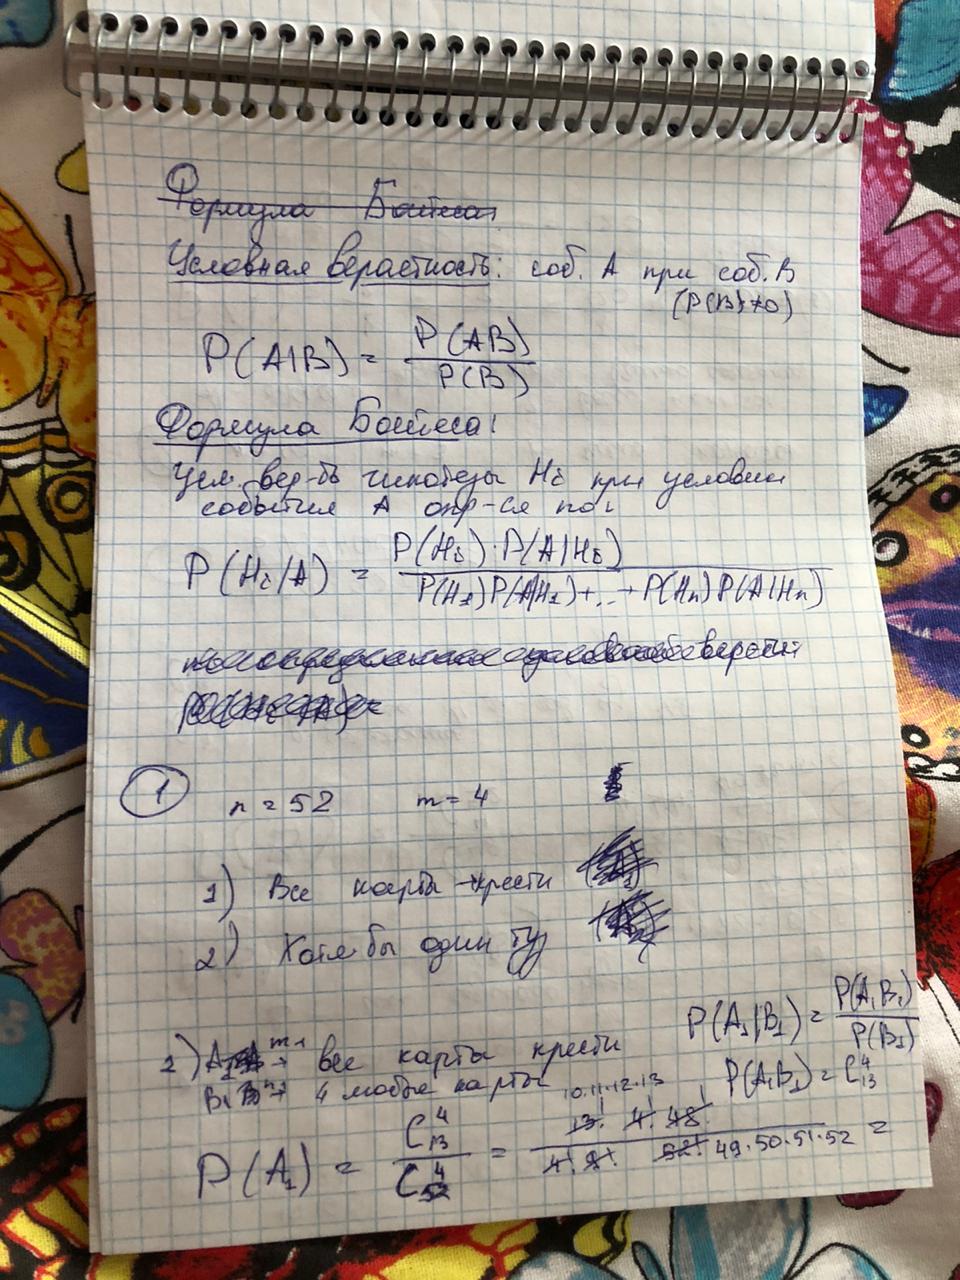 Формула Байеса
Условная верастность: соб. A при соб. B
(P(B)≠0)
P(A|B) = P(AB) / P(B)
Формула Байеса:
Усл. вер-ть гипотезы Hi при условии
события A опр-ся по:
P(Hi/A) = P(Hi)·P(A|Hi) / P(H1)P(A|H1)+...+P(Hn)P(A|Hn)
1 n = 52 m = 4
1) Все карты - крести
2) Хотя бы один туз
P(A1|B1) = P(A1B1) / P(B1)
1) A1 все карты крести
B1 4 любые карты
P(A1B1) = C_13^4
10·11·12·13
P(A1) = C_13^4 / C_52^4 = 13! 4! 48! / 4! 9! 52! 49·50·51·52 =